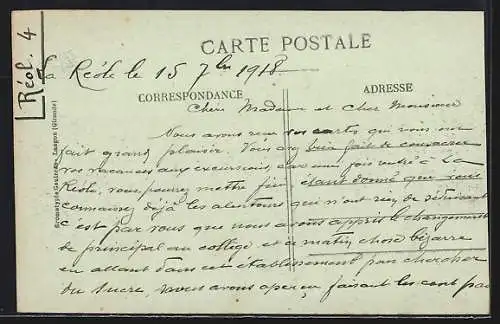 Réol. 4
CARTE POSTALE
La Réole le 15 7bre 1918
CORRESPONDANCE
ADRESSE
Chère Madame et Cher Monsieur
Nous avons reçu vos cartes qui nous ont
fait grand plaisir. Vous avez bien fait de consacrer
vos vacances aux excursions car une fois rentré à La
Réole, vous pourrez mettre fin étant donné que vous
connaissez déjà les alentours qui n'ont rien de séduisant
C'est par vous que nous avons appris le changement
de principal au collège, et ce matin, chose bizarre
en allant dans cet établissement pour chercher
du sucre, nous avons aperçu faisant les cent pas
Bromotypie Gautreau, Langon (Gironde)